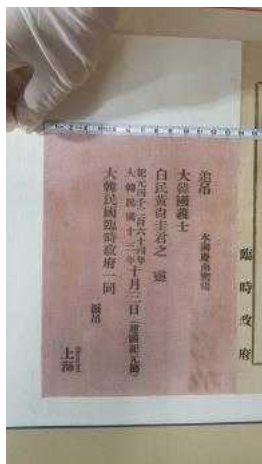 臨時政府
本國慶南密陽
追吊
大韓國義士
白民黃尙圭君之 靈
紀元四千二百六十四年
大韓民國十三年
十月三日(建國紀元節)
大韓民國臨時政府一同
上海